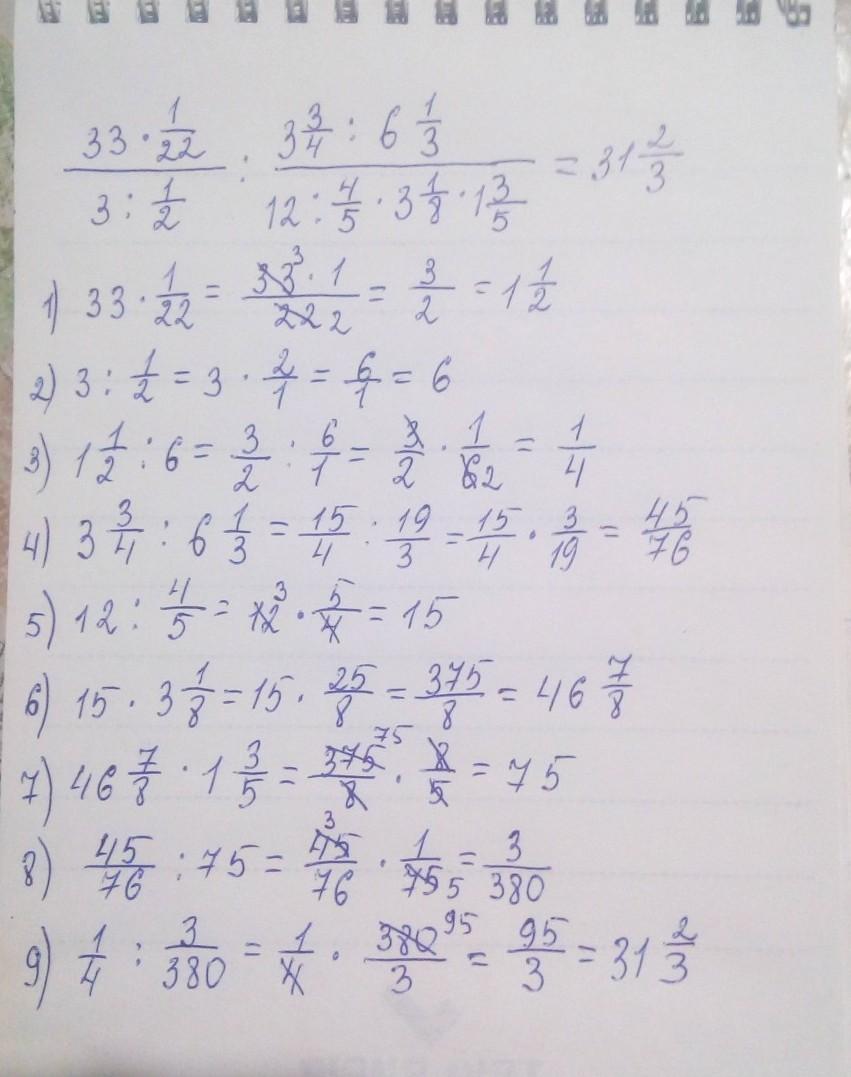 33 · 1/22 / 3 : 1/2 : 3 3/4 : 6 1/3 / 12 : 4/5 · 3 1/8 · 1 3/5 = 31 2/3
1) 33 · 1/22 = 33 3 · 1 / 22 2 = 3/2 = 1 1/2
2) 3 : 1/2 = 3 · 2/1 = 6/1 = 6
3) 1 1/2 : 6 = 3/2 : 6/1 = 3/2 · 1/6 2 = 1/4
4) 3 3/4 : 6 1/3 = 15/4 : 19/3 = 15/4 · 3/19 = 45/76
5) 12 : 4/5 = 12 3 · 5/4 = 15
6) 15 · 3 1/8 = 15 · 25/8 = 375/8 = 46 7/8
7) 46 7/8 · 1 3/5 = 375 75 / 8 · 8/5 = 75
8) 45/76 : 75 = 45 3 / 76 · 1/75 5 = 3/380
9) 1/4 : 3/380 = 1/4 · 380 95 / 3 = 95/3 = 31 2/3